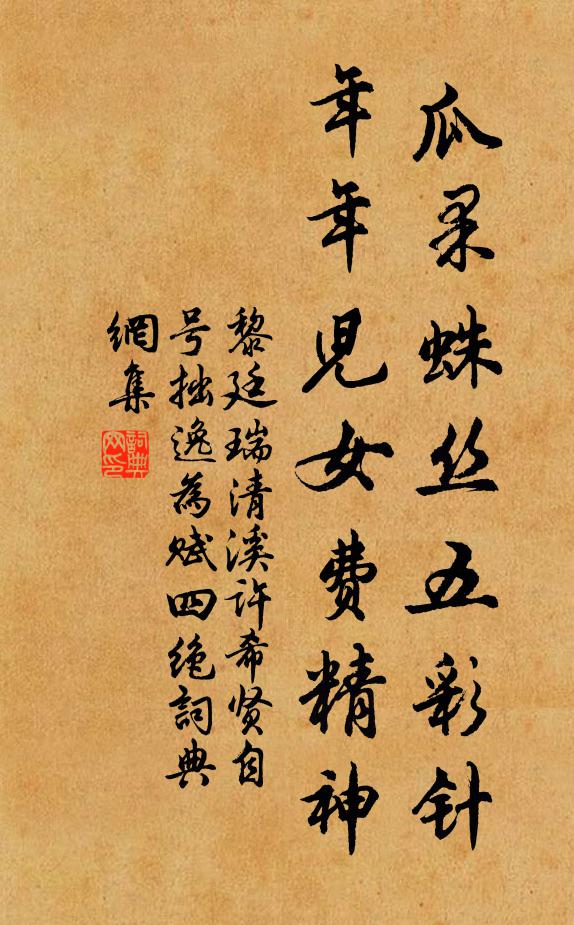 瓜果蛛丝五彩针
年年児女费精神
黎廷瑞清溪许希贤自
号拙逸为赋四绝詞典
網集
詞典
网印